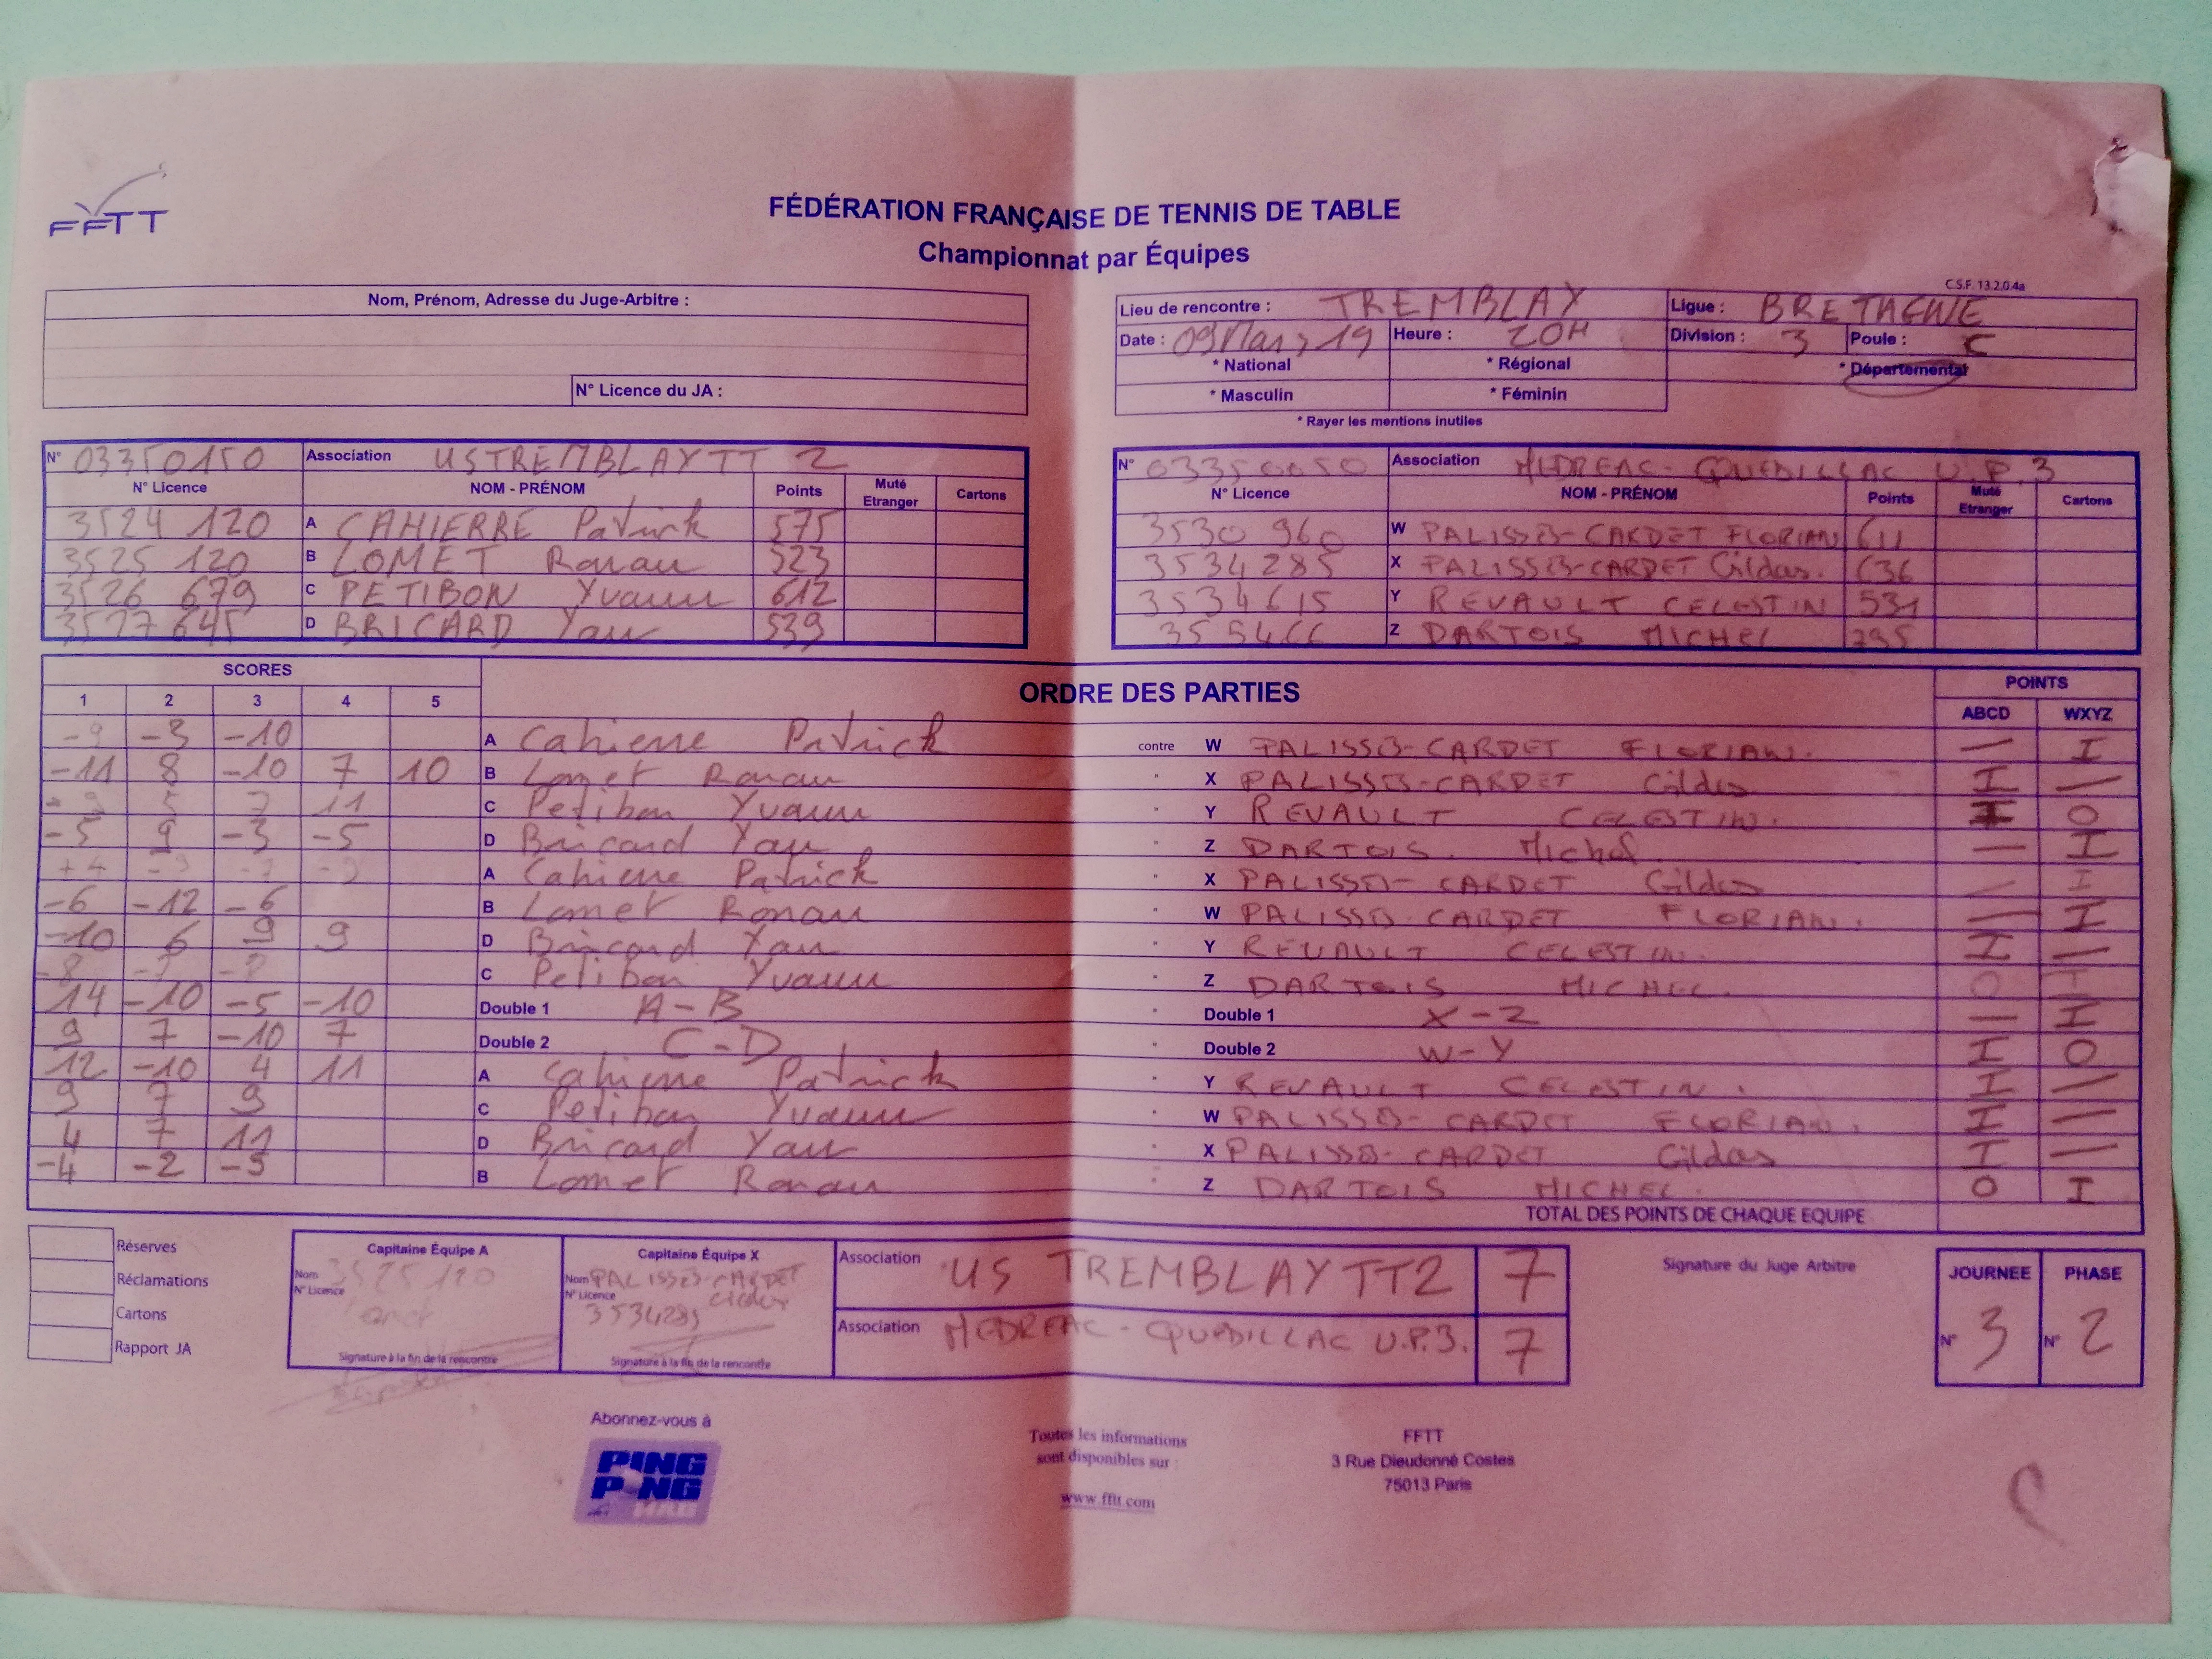 FFTT
FÉDÉRATION FRANÇAISE DE TENNIS DE TABLE
Championnat par Équipes
C.S.F. 13.2.0.4a
Nom, Prénom, Adresse du Juge-Arbitre :
N° Licence du JA :
Lieu de rencontre : TREMBLAY Ligue : BRETAGNE
Date : 09 Mars 19 Heure : 20H Division : 3 Poule : C
* National * Régional * Départemental
* Masculin * Féminin
* Rayer les mentions inutiles
N° 03350150 Association USTREMBLAYTT 2
N° Licence NOM - PRÉNOM Points Muté Etranger Cartons
3524 120 A CAHIERRE Patrick 575
3525 120 B LOMET Ronan 523
3526 679 C PETIBON Yvann 612
3527 645 D BRICARD Yan 539
N° 03350050 Association MEDREAC-QUEDILLAC U.P.3
N° Licence NOM - PRÉNOM Points Muté Etranger Cartons
3530 960 W PALISSE-CARDET FLORIAN 611
3534285 X PALISSE-CARDET Gildas. 636
3534615 Y REVAULT CELESTIN 531
Z DARTOIS MICHEL 795
SCORES ORDRE DES PARTIES POINTS
1 2 3 4 5 ABCD WXYZ
-9 -3 -10 A Cahierre Patrick contre W PALISSE-CARDET FLORIAN. — I
-11 8 -10 7 10 B Lomet Ronan X PALISSE-CARDET Gildas I —
5 7 11 C Petibon Yvann Y REVAULT CELESTIN. I O
-5 9 -3 -5 D Bricard Yan Z DARTOIS. Michel. — I
+4 -9 -7 -9 A Cahierre Patrick X PALISSE-CARDET Gildas — I
-6 -12 -6 B Lomet Ronan W PALISSE-CARDET FLORIAN. — I
-10 6 9 9 D Bricard Yan Y REVAULT CELESTIN. I —
-8 -7 C Petibon Yvann Z DARTOIS MICHEL. O I
14 -10 -5 -10 Double 1 A-B Double 1 X-Z — I
9 7 -10 7 Double 2 C-D Double 2 W-Y I O
12 -10 4 11 A Cahierre Patrick Y REVAULT CELESTIN. I —
9 7 9 C Petibon Yvann W PALISSE-CARDET FLORIAN. I —
4 7 11 D Bricard Yan X PALISSE-CARDET Gildas I —
-4 -2 -3 B Lomet Ronan Z DARTOIS MICHEL. O I
TOTAL DES POINTS DE CHAQUE EQUIPE
Réserves
Réclamations
Cartons
Rapport JA
Capitaine Équipe A
Nom 3525120
N° Licence Lomet
Signature à la fin de la rencontre
Capitaine Équipe X
Nom PALISSE-CARDET
N° Licence Gildas
3534285
Signature à la fin de la rencontre
Association US TREMBLAYTT2 7
Association MEDREAC-QUEDILLAC U.P.3. 7
Signature du Juge Arbitre
JOURNEE PHASE
N° 3 N° 2
Abonnez-vous à
PING PONG MAG
Toutes les informations
sont disponibles sur :
www.fftt.com
FFTT
3 Rue Dieudonné Costes
75013 Paris